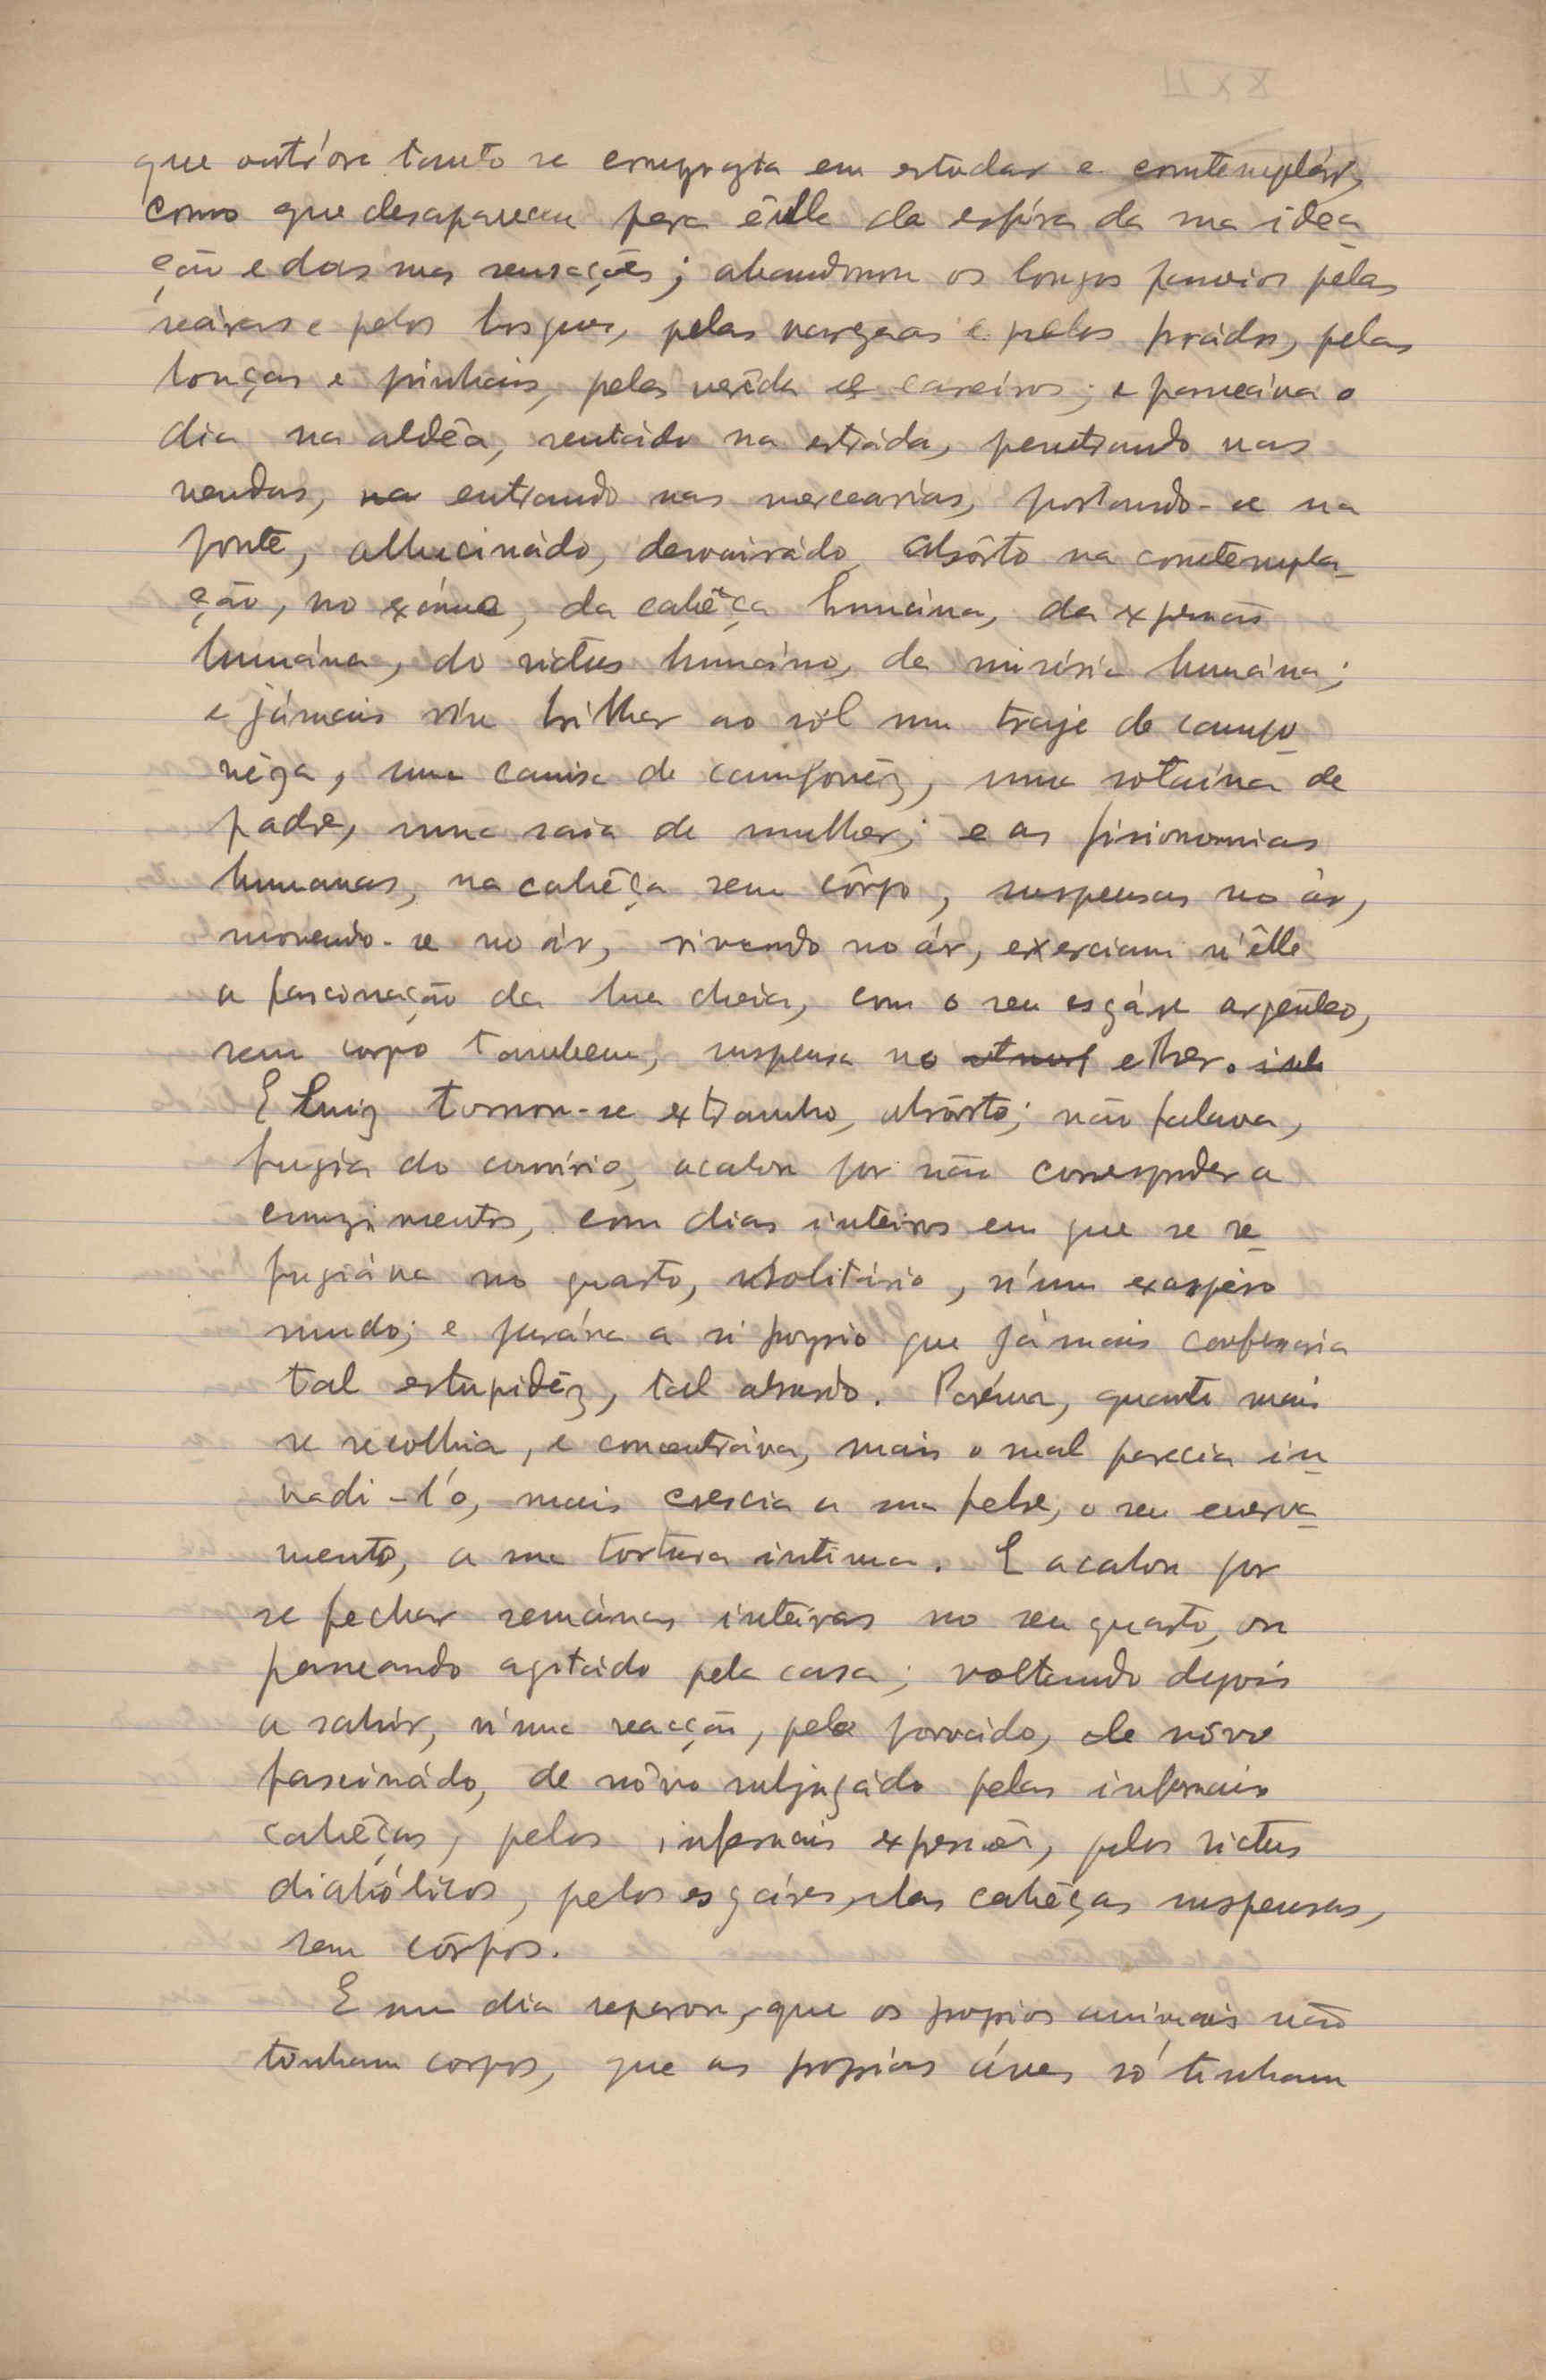 que outróra tanto se comprazia em estudar e comtemplár,
como que desapareceu para êlle da esféra da sua idea-
ção e das suas sensações; abandonou os longos passeios pelas
seáras e pelos bosques, pelas vargeas e pelos prádos, pelas
bouças e pinhais, pelas veréda e careiros; e passeáva o
dia na aldêa, sentádo na estráda, penetrando nas
vendas, na entrando nas mercearias, postando-se na
fonte, allucinádo, desvairádo, absôrto na comtempla-
ção, no exáme, da cabêça humána, da expressão
humána, do rictus humáno, da miséria humána;
e jámais viu brilhar ao sól um traje de campo-
nêza, uma camisa de camponêz, uma sotaina de
padre, uma saia de mulher; e as fisionomias
humanas, na cabêça sem côrpo, suspensas no ár,
movendo-se no ár, vivendo no ár, exerciam n'êlle
a fascinação da lua cheia, com o seu esgáre argênteo,
sem corpo tambem, suspensa no ether.
E Luiz tornou-se extranho, absôrto; não falava,
fugia do convívio, acabou por não corresponder a
cumprimentos, com dias inteiros em que se re-
fugiáva no quarto, solitário, n'um exaspéro
mudo; e juráva a si proprio que jámais confessaria
tal estupidêz, tal absurdo. Porém, quanto mais
se recolhia, e concentráva, mais o mal parecia in-
vadi-l'o, mais crescia a sua febre, o seu enerva-
mento, a sua tortura intima. E acabou por
se fechar semánas inteiras no seu quarto, ou
passeando agitádo pela casa; voltando depois
a sahir, n'uma reacção, pelo povoádo, de nôvo
fascinádo, de nôvo subjugádo pelas infernais
cabêças, pelas infernais expressões, pelos rictus
diabólicos, pelos esgáres, das cabêças suspensas,
sem côrpos.
E um dia reparou, que os proprios animais não
tinham corpos, que as proprias áves só tinham